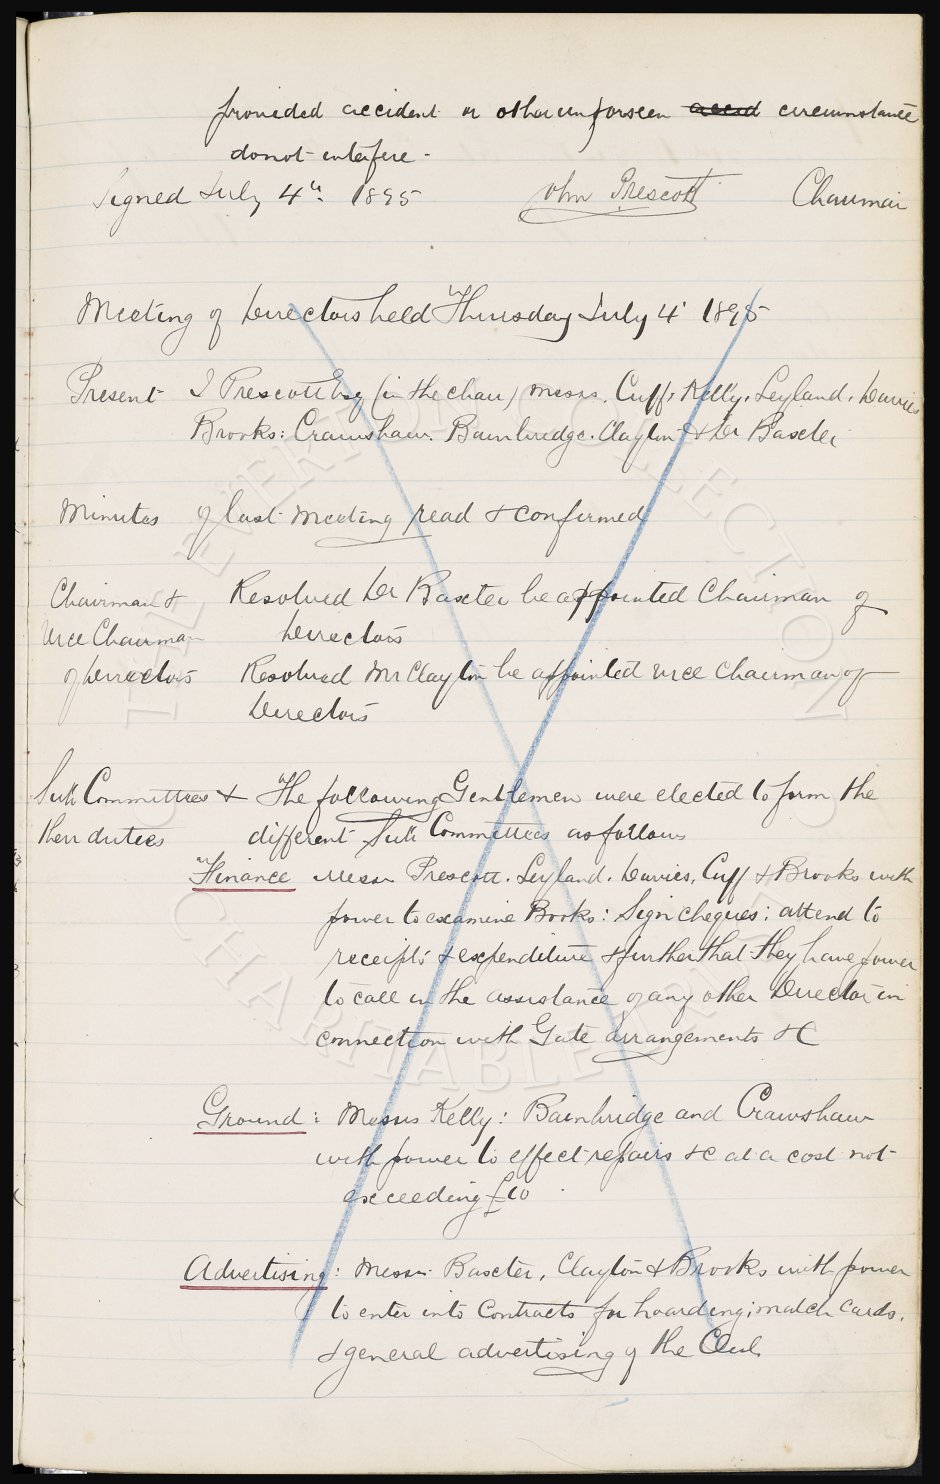 provided accident or other unforseen accid circumstance
do not interfere -
Signed July 4th 1895 John Prescott Chairman
Meeting of Directors held Thursday July 4' 1895
Present J Prescott Esq (in the chair) Messrs. Cuff, Kelly, Leyland, Davies
Brooks: Crawshaw. Bainbridge. Clayton & Dr Baxter
Minutes of last meeting read & confirmed
Chairman & Resolved Dr Baxter be appointed Chairman of
Vice Chairman Directors
of Directors Resolved Mr Clayton be appointed vice Chairman of
Directors
Sub Committees & The following Gentlemen were elected to form the
their duties different Sub Committees as follows
Finance Messrs Prescott. Leyland. Davies, Cuff & Brooks with
power to examine Books: Sign cheques: attend to
receipts & expenditure & further that they have power
to call in the assistance of any other Director in
connection with Gate arrangements &c
Ground: Messrs Kelly: Bainbridge and Crawshaw
with power to effect repairs &c at a cost not
exceeding £10
Advertising: Messrs. Baxter, Clayton & Brooks with power
to enter into Contracts for hoarding: match cards.
& general advertising of the Club
THE EVERTON COLLECTION
CHARITABLE TRUST